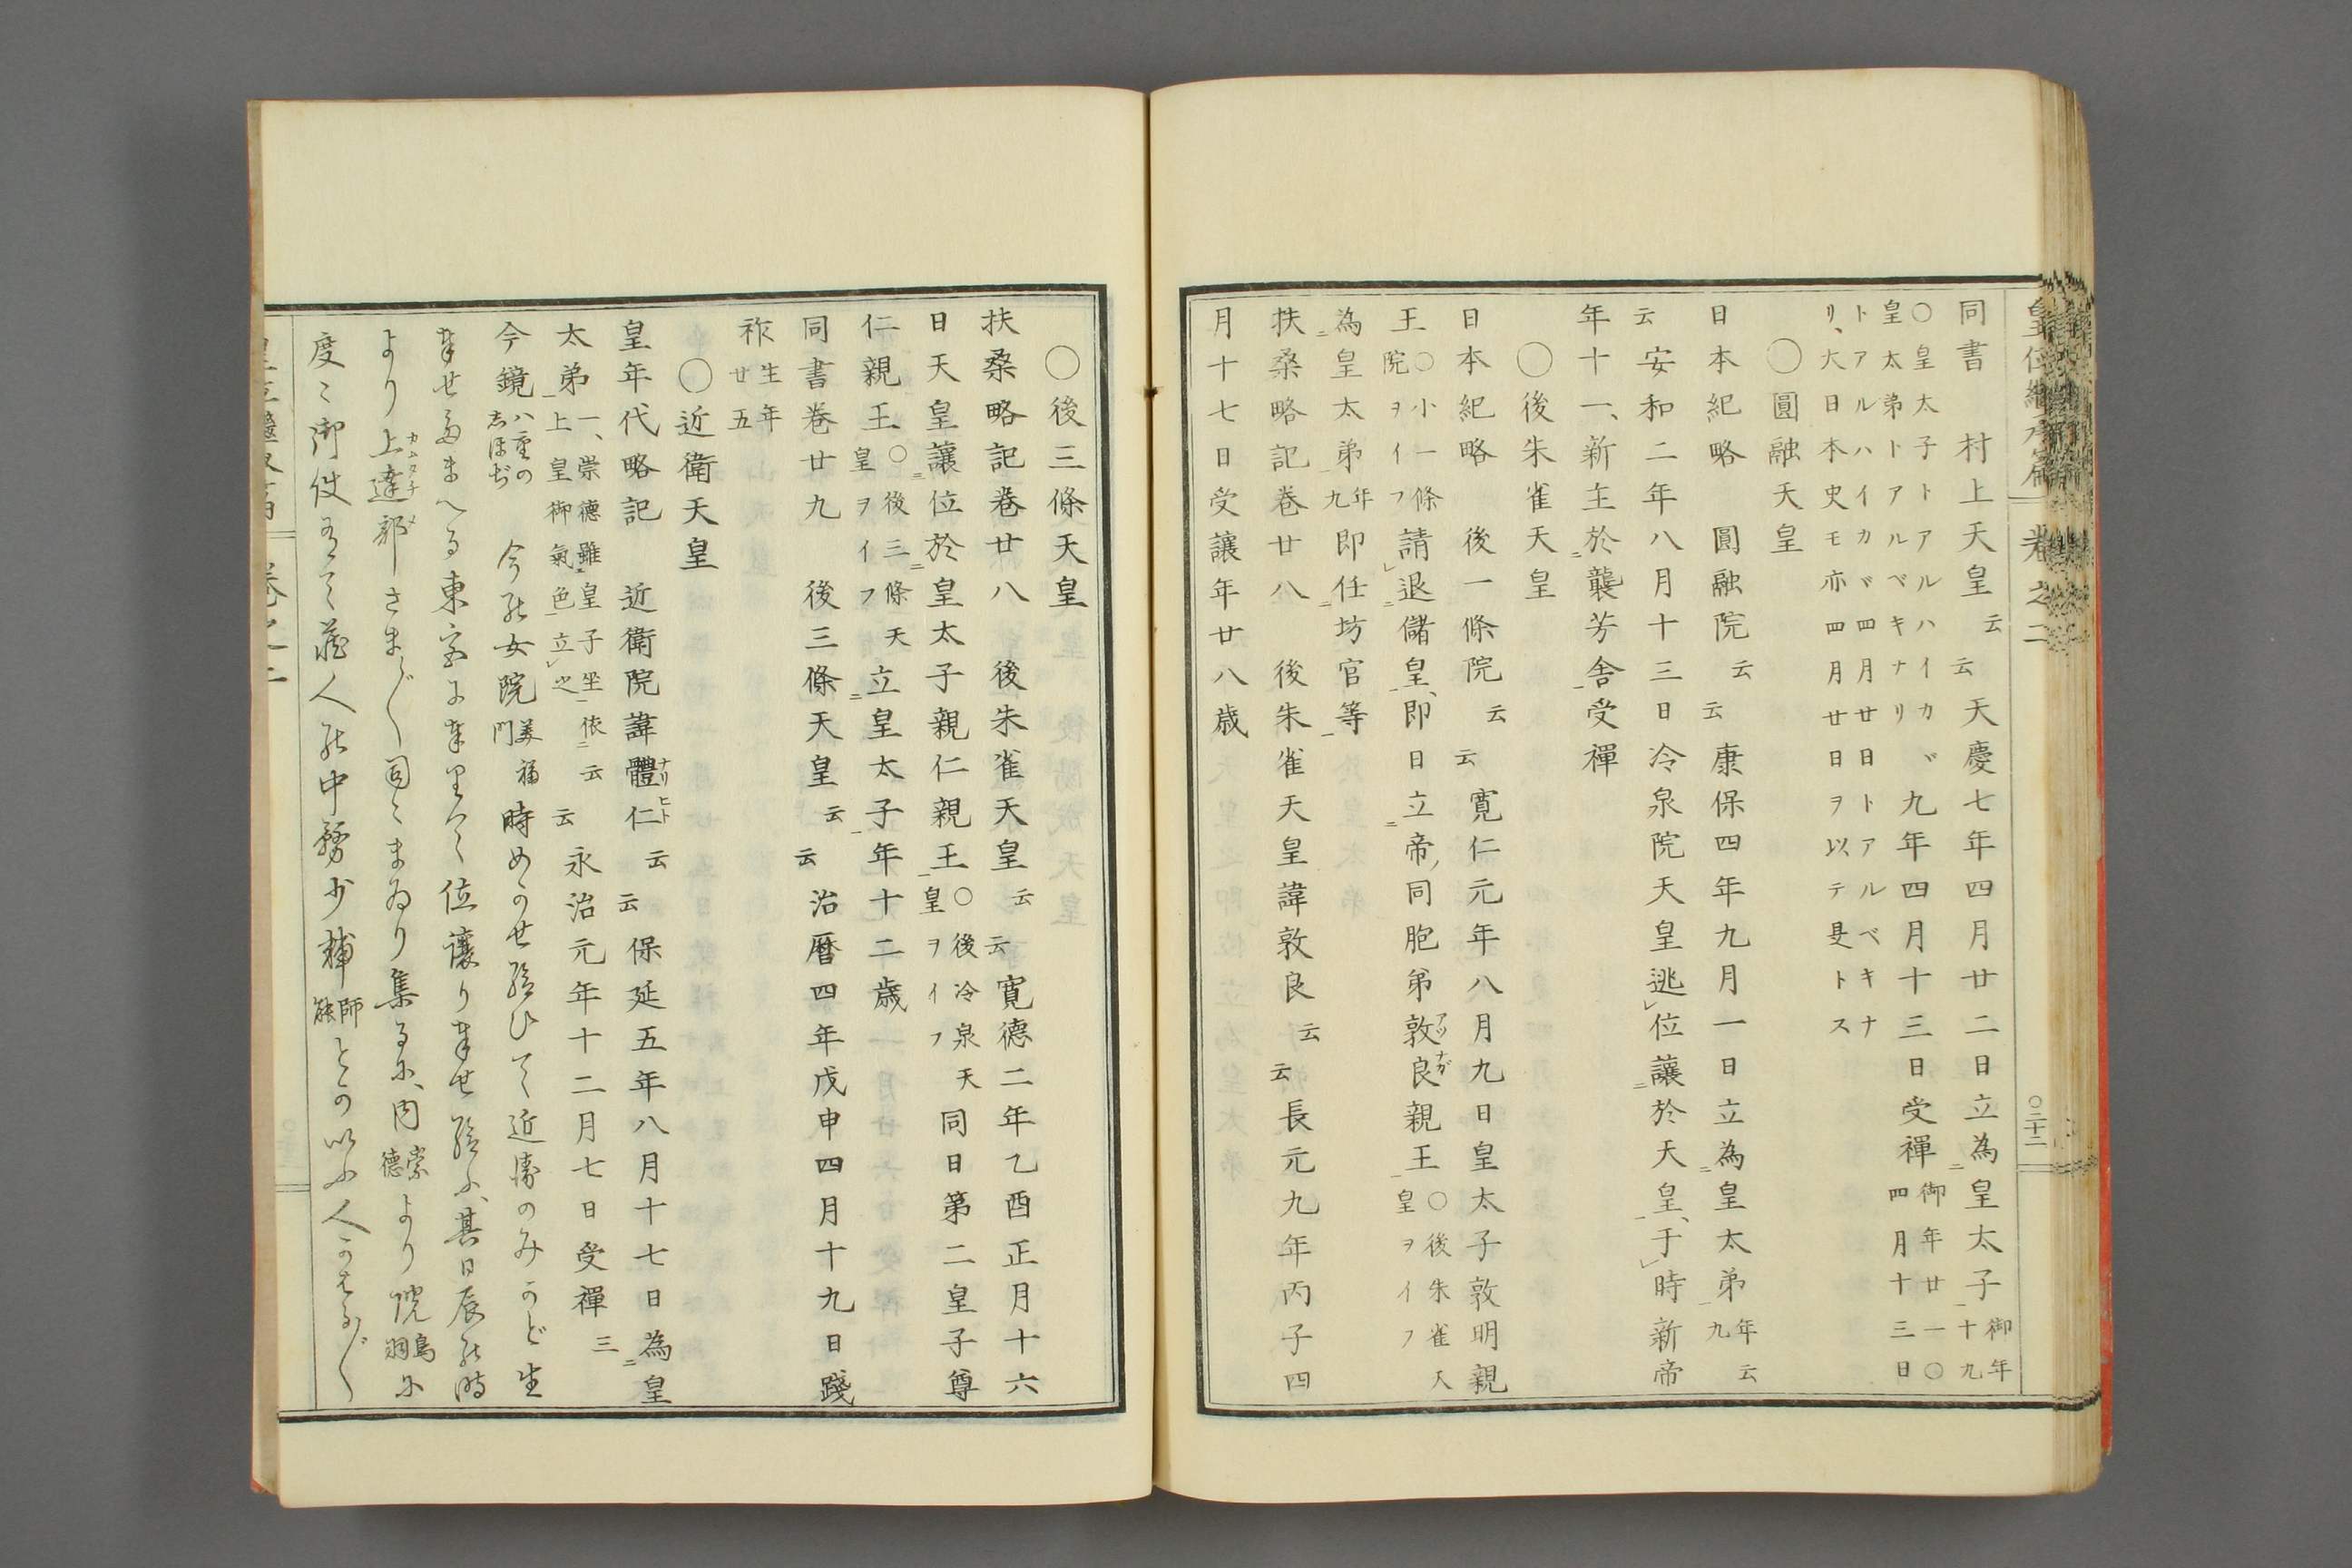 皇位繼承篇 卷之二 〇二十二
同書 村上天皇云云天慶七年四月廿二日立為皇太子御年十九
〇皇太子トアルハイカヾ
皇太弟トアルベキナリ
九年四月十三日受禪御年廿一〇四月十三日
トアルハイカヾ四月廿日トアルベキナ
リ、大日本史モ亦四月廿日ヲ以テ是トス
〇圓融天皇
日本紀略 圓融院云云康保四年九月一日立為皇太弟年九云
云安和二年八月十三日冷泉院天皇逃位讓於天皇、于時新帝
年十一、新主於襲芳舍受禪
〇後朱雀天皇
日本紀略 後一條院云云寬仁元年八月九日皇太子敦明親
王〇小一條院ヲイフ請退儲皇、即日立帝同胞弟敦良親王〇後朱雀天皇ヲイフ
為皇太弟年九即任坊官等
扶桑略記卷廿八 後朱雀天皇諱敦良云云長元九年丙子四
月十七日受讓年廿八歲
〇後三條天皇
扶桑略記卷廿八 後朱雀天皇云云寬德二年乙酉正月十六
日天皇讓位於皇太子親仁親王〇後冷泉天皇ヲイフ同日第二皇子尊
仁親王〇後三條天皇ヲイフ立皇太子年十二歲
同書卷廿九 後三條天皇云云治曆四年戊申四月十九日踐
祚生年廿五
〇近衛天皇
皇年代略記 近衛院諱體仁云云保延五年八月十七日為皇
太弟一、崇德雖皇子坐依云上皇御氣色立之云永治元年十二月七日受禪三
今鏡八重のしほぢ 今の女院美福門時めかせ給ひて近衛のみかど生
奉せ給へる東宮に奉りて位讓り奉せ給ふ、其日辰の時
より上達部さま〲〱固くまゐり集るに、内崇德より院鳥羽に
度々御使有て藏人の中務少輔師能とかいふ人かはる〲〱